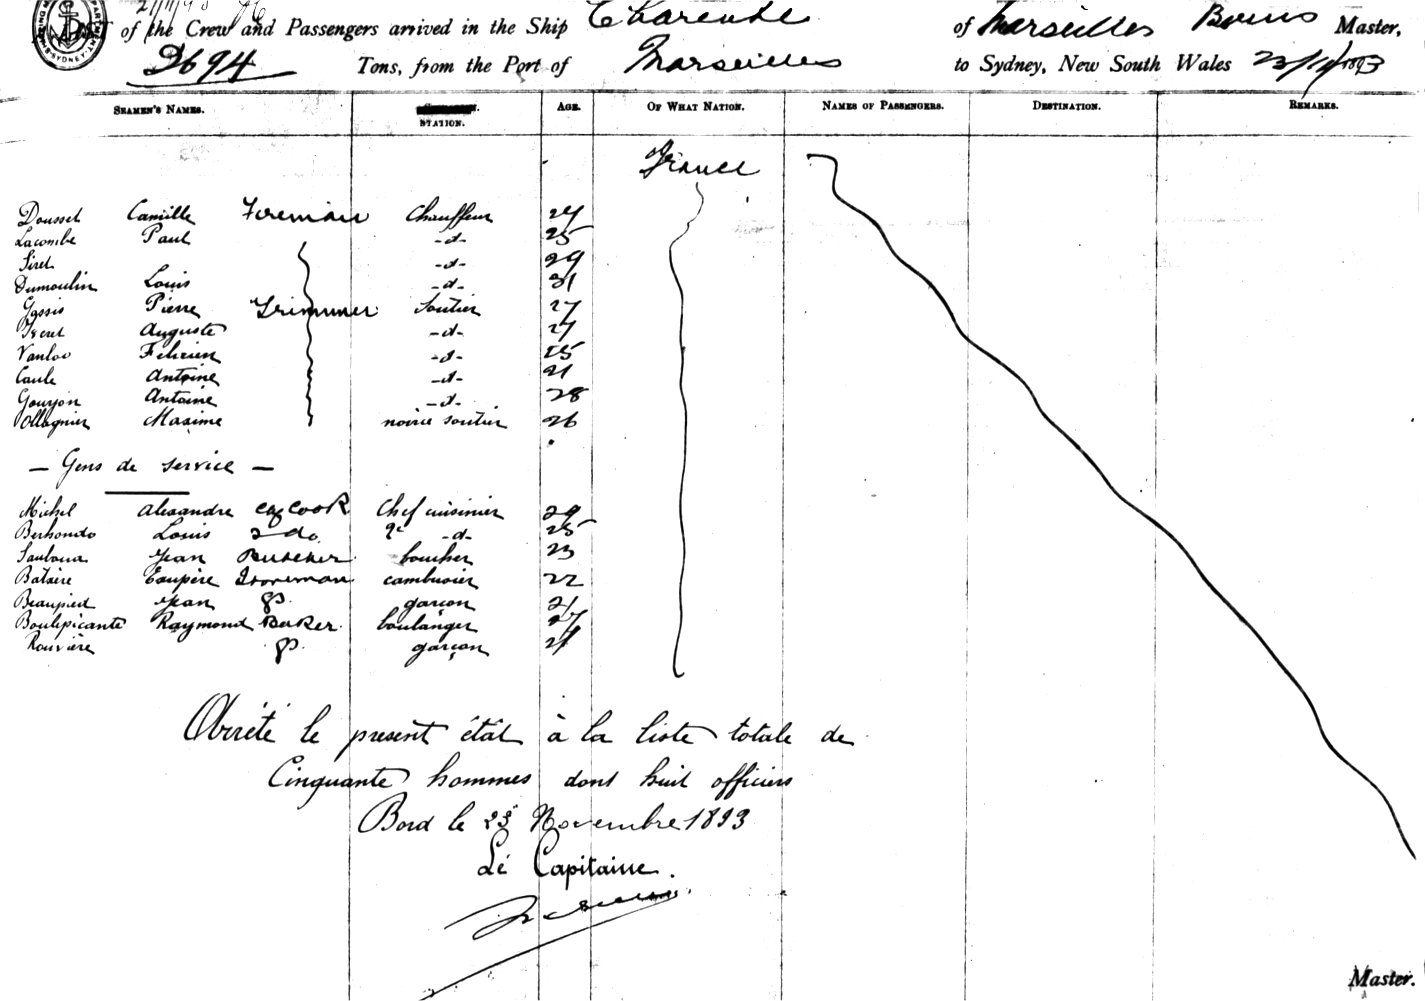 LIST of the Crew and Passengers arrived in the Ship Charente of Marseilles Master,
2694 Tons, from the Port of Marseilles to Sydney, New South Wales 23/11/1893
SEAMEN'S NAMES. STATION. AGE. OF WHAT NATION. NAMES OF PASSENGERS. DESTINATION. REMARKS.
France
Dousset Camille Fireman Chauffeur 24
Lacombe Paul -d- 25
Siret -d- 29
Dumoulin Louis -d- 31
Gassis Pierre Trimmer Soutier 27
Auguste -d- 27
Vanloo Felicien -d- 25
Caule Antoine -d- 21
Gouyon Antoine -d- 28
Ollagnier Maxime novice soutier 26
- Gens de service -
Michel Alexandre Cook Chef cuisinier 29
Berhondo Louis 2 do. 2e -d- 25
Jean Butcher boucher 23
Bataire Storeman cambusier 22
Beaupied Jean garçon 21
Boulepicante Raymond Baker boulanger 27
Rouvière garçon 21
Arrêté le présent état à la liste totale de
Cinquante hommes dont huit officiers
Bord le 23 Novembre 1893
Le Capitaine.
Master.